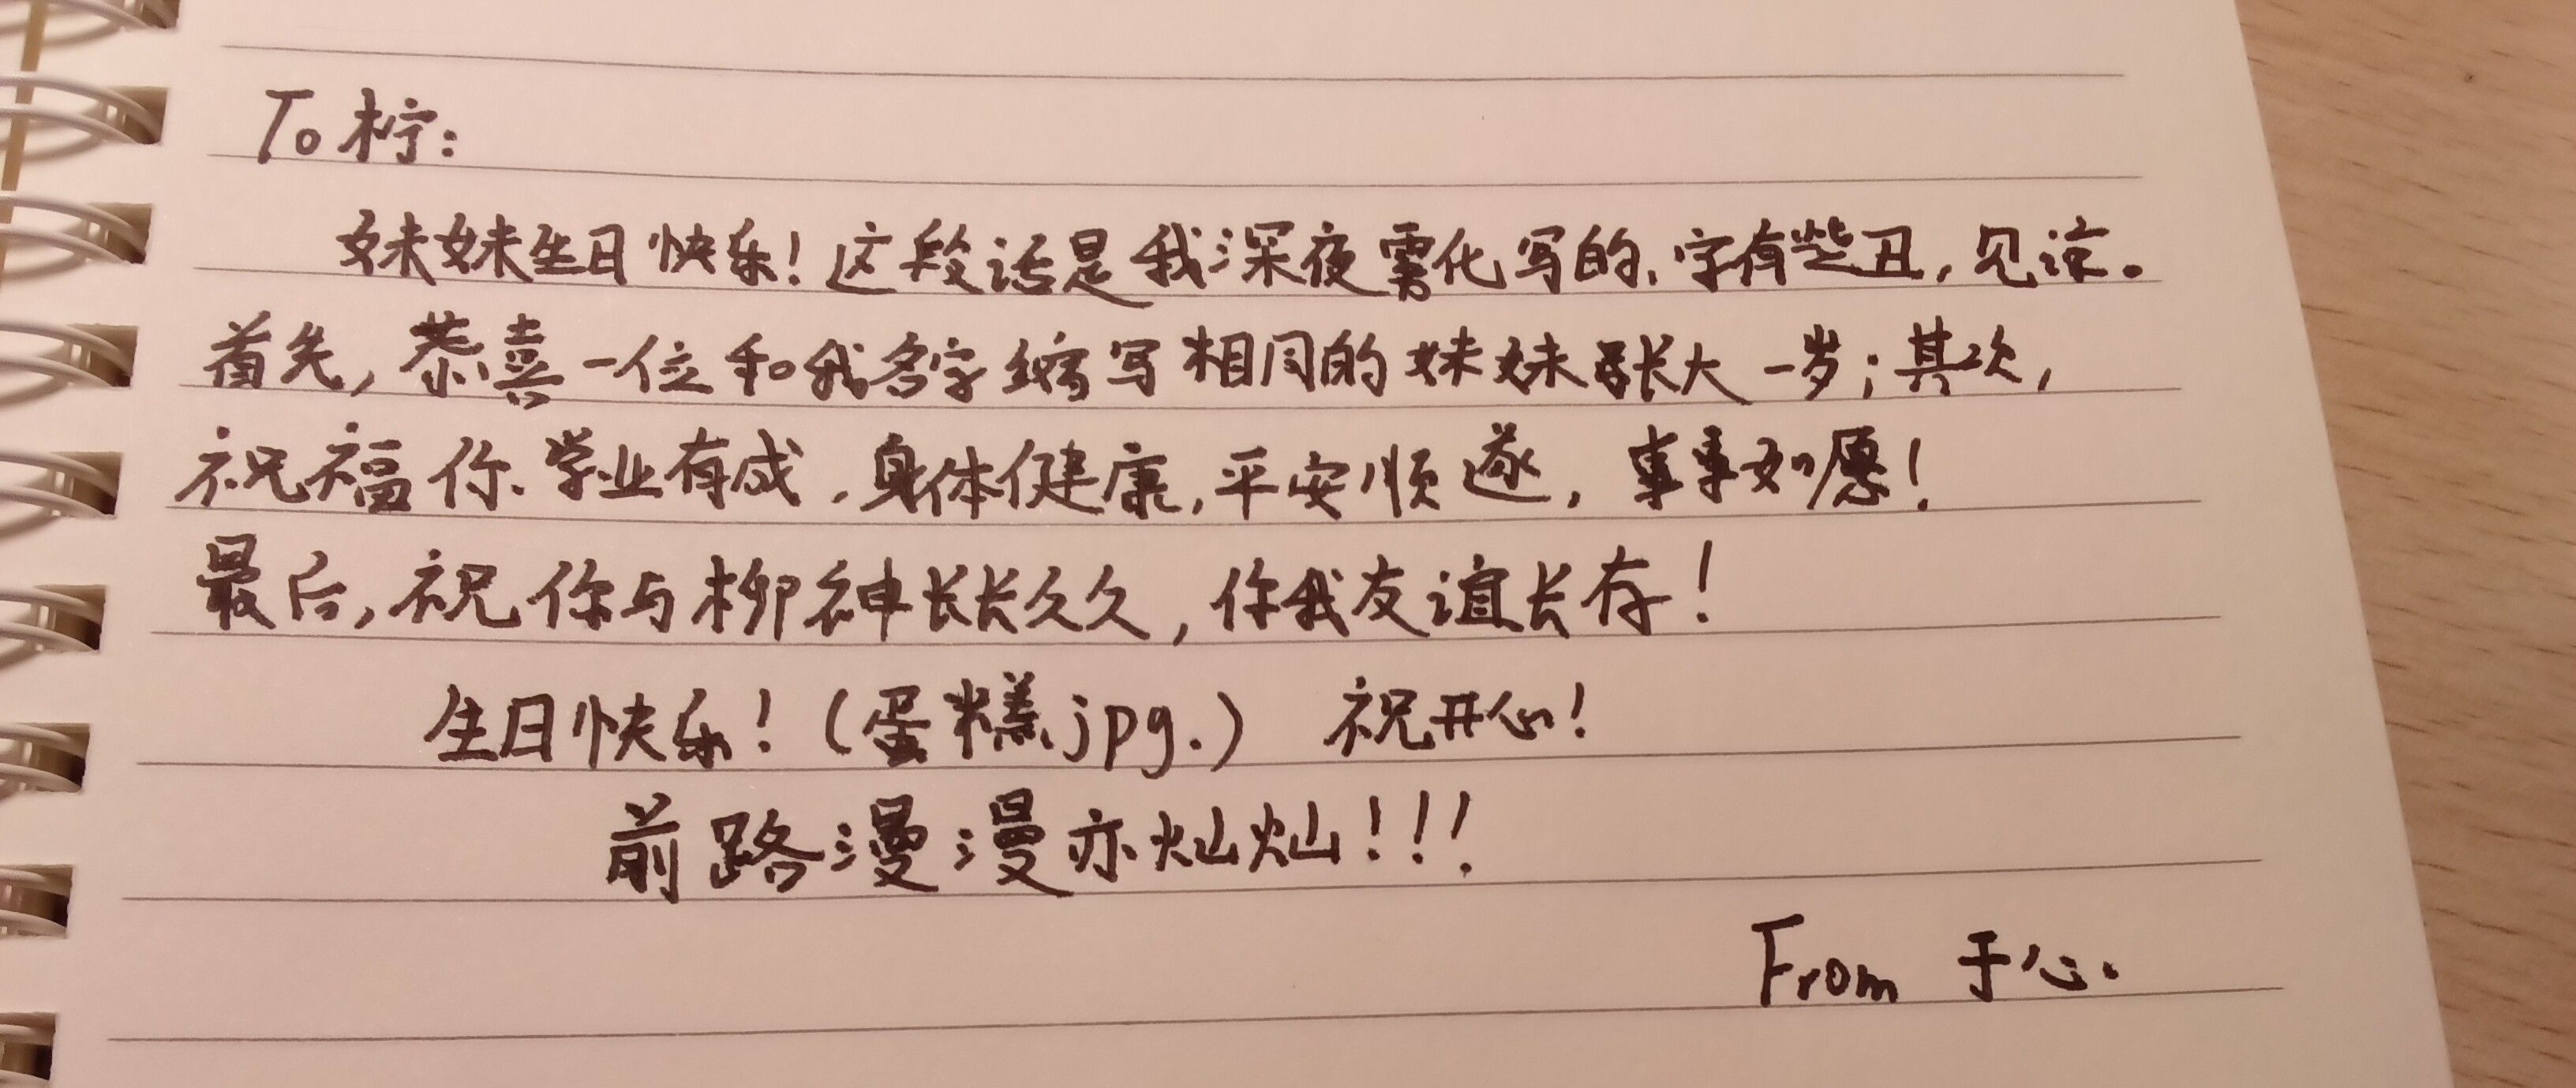 To 柠：
妹妹生日快乐！这段话是我深夜雾化写的，字有些丑，见谅。
首先，恭喜一位和我名字缩写相同的妹妹长大一岁；其次，
祝福你、学业有成，身体健康，平安顺遂，事事如愿！
最后，祝你与柳神长长久久，你我友谊长存！
生日快乐！（蛋糕.jpg.） 祝开心！
前路漫漫亦灿灿！！！
From 于心.